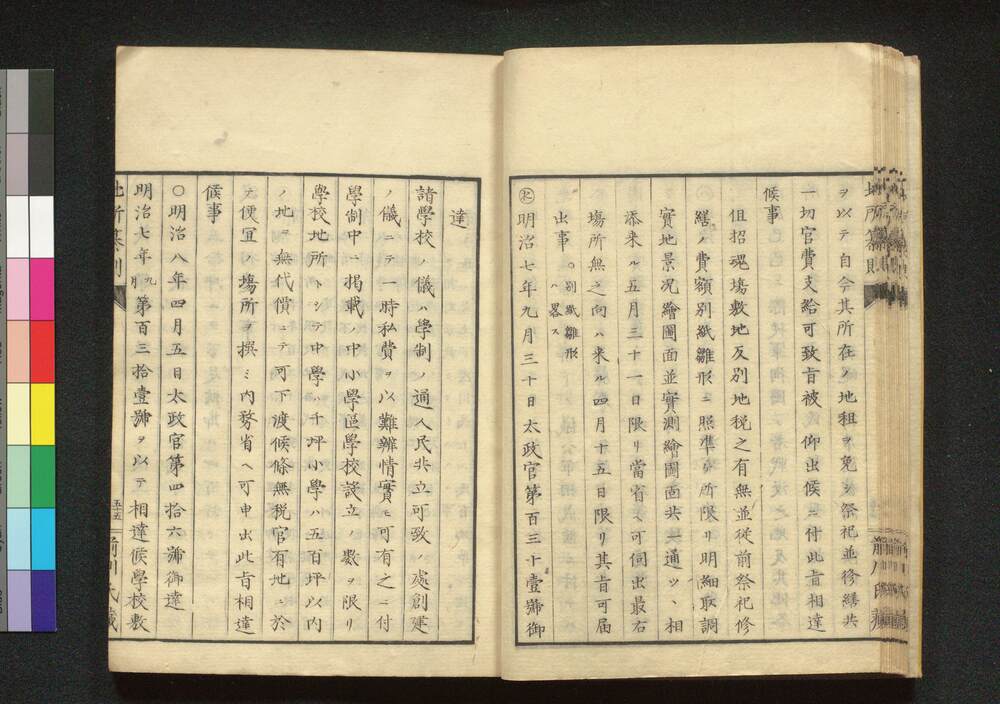 ヲ以テ自今其所在ノ地租ヲ免シ祭祀並修繕共
一切官費支給可致旨被仰出候ニ付此旨相達
候事
但招魂塲敷地反別地税之有無並從前祭祀修
繕ノ費額別紙雛形ニ照準シ所限リ明細取調
實地景况繪圖面並實測繪圖面共二通ツヽ相
添来ル五月三十一日限リ當省ヘ可伺出最右
塲所無之向ハ来ル四月十五日限リ其旨可届
出事 〇別紙雛形ハ畧ス
明治七年九月三十日太政官第百三十壹號御
達
諸學校ノ儀ハ學制ノ通人民共立可致ノ處創建
ノ儀ニテ一時私費ヲ以難辨情實モ可有之ニ付
學制中ニ掲載ノ中小學區學校設立ノ數ヲ限リ
學校地所トシテ中學ハ千坪小學ハ五百坪以内
ノ地ヲ無代價ニテ可下渡候條無税官有地ニ於
テ便冝ノ塲所ヲ撰ミ内務省ヘ可申出此旨相達
候事
〇明治八年四月五日太政官第四拾六號御達
明治七年九月第百三拾壹號ヲ以テ相達候學校敷
地所纂則
五十五
前川氏藏